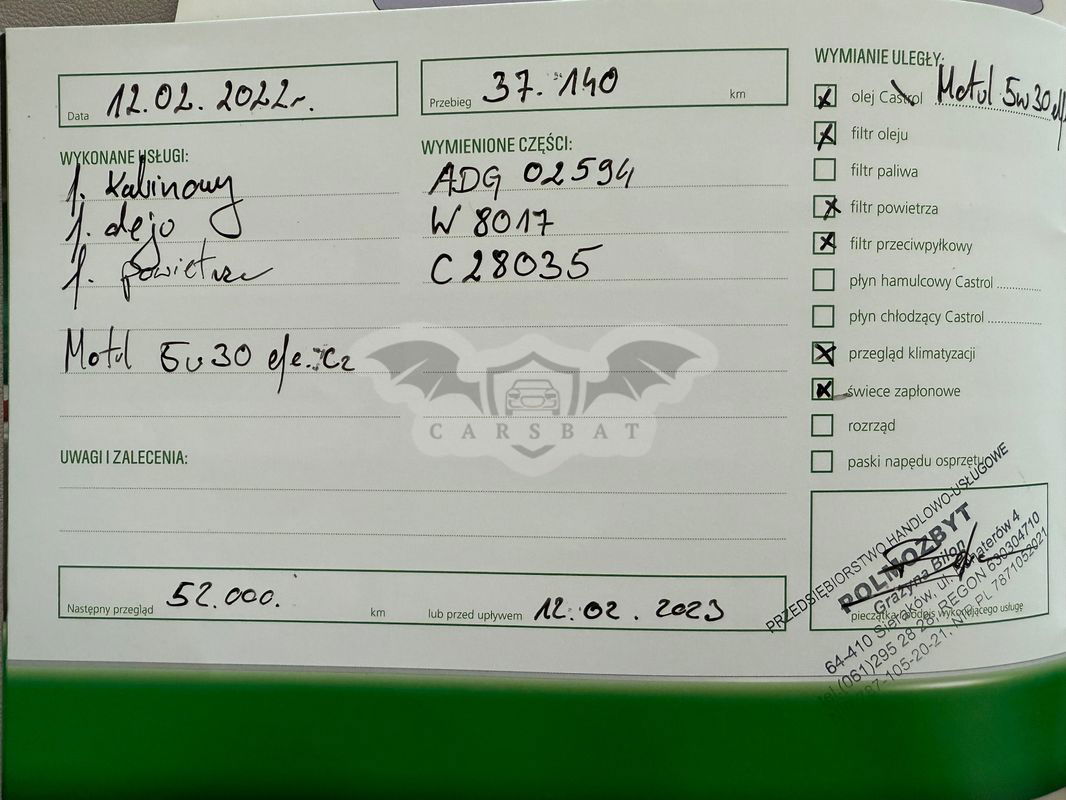 Data 12.02.2022r.
Przebieg 37.140 km
WYKONANE USŁUGI:
f. Kabinowy
f. oleju
f. powietrza
Motul 5w30
WYMIENIONE CZĘŚCI:
ADG 02594
W 8017
C 28035
UWAGI I ZALECENIA:
Następny przegląd 52.000. km lub przed upływem 12.02.2023
WYMIANIE ULEGŁY:
olej Castrol Motul 5w30
filtr oleju
filtr paliwa
filtr powietrza
filtr przeciwpyłkowy
płyn hamulcowy Castrol
płyn chłodzący Castrol
przegląd klimatyzacji
świece zapłonowe
rozrząd
paski napędu osprzętu
PRZEDSIĘBIORSTWO HANDLOWO-USŁUGOWE
POLMOZBYT
Grażyna Billon
64-410 Sieraków, ul. 4
tel. (061)295 28 28, REGON 630304710
787-105-20-21, NIP PL 7871052021
pieczątka i podpis wykonującego usługę
CARSBAT